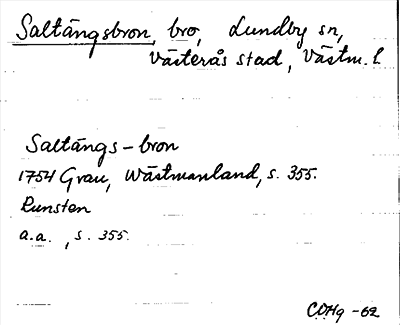 Saltängsbron, bro, Lundby sn,
Västerås stad, Västm. l.
Saltängs-bron
1754 Grau, Wästmanland, s. 355.
Runsten
a.a., s. 355.
CDHg -62